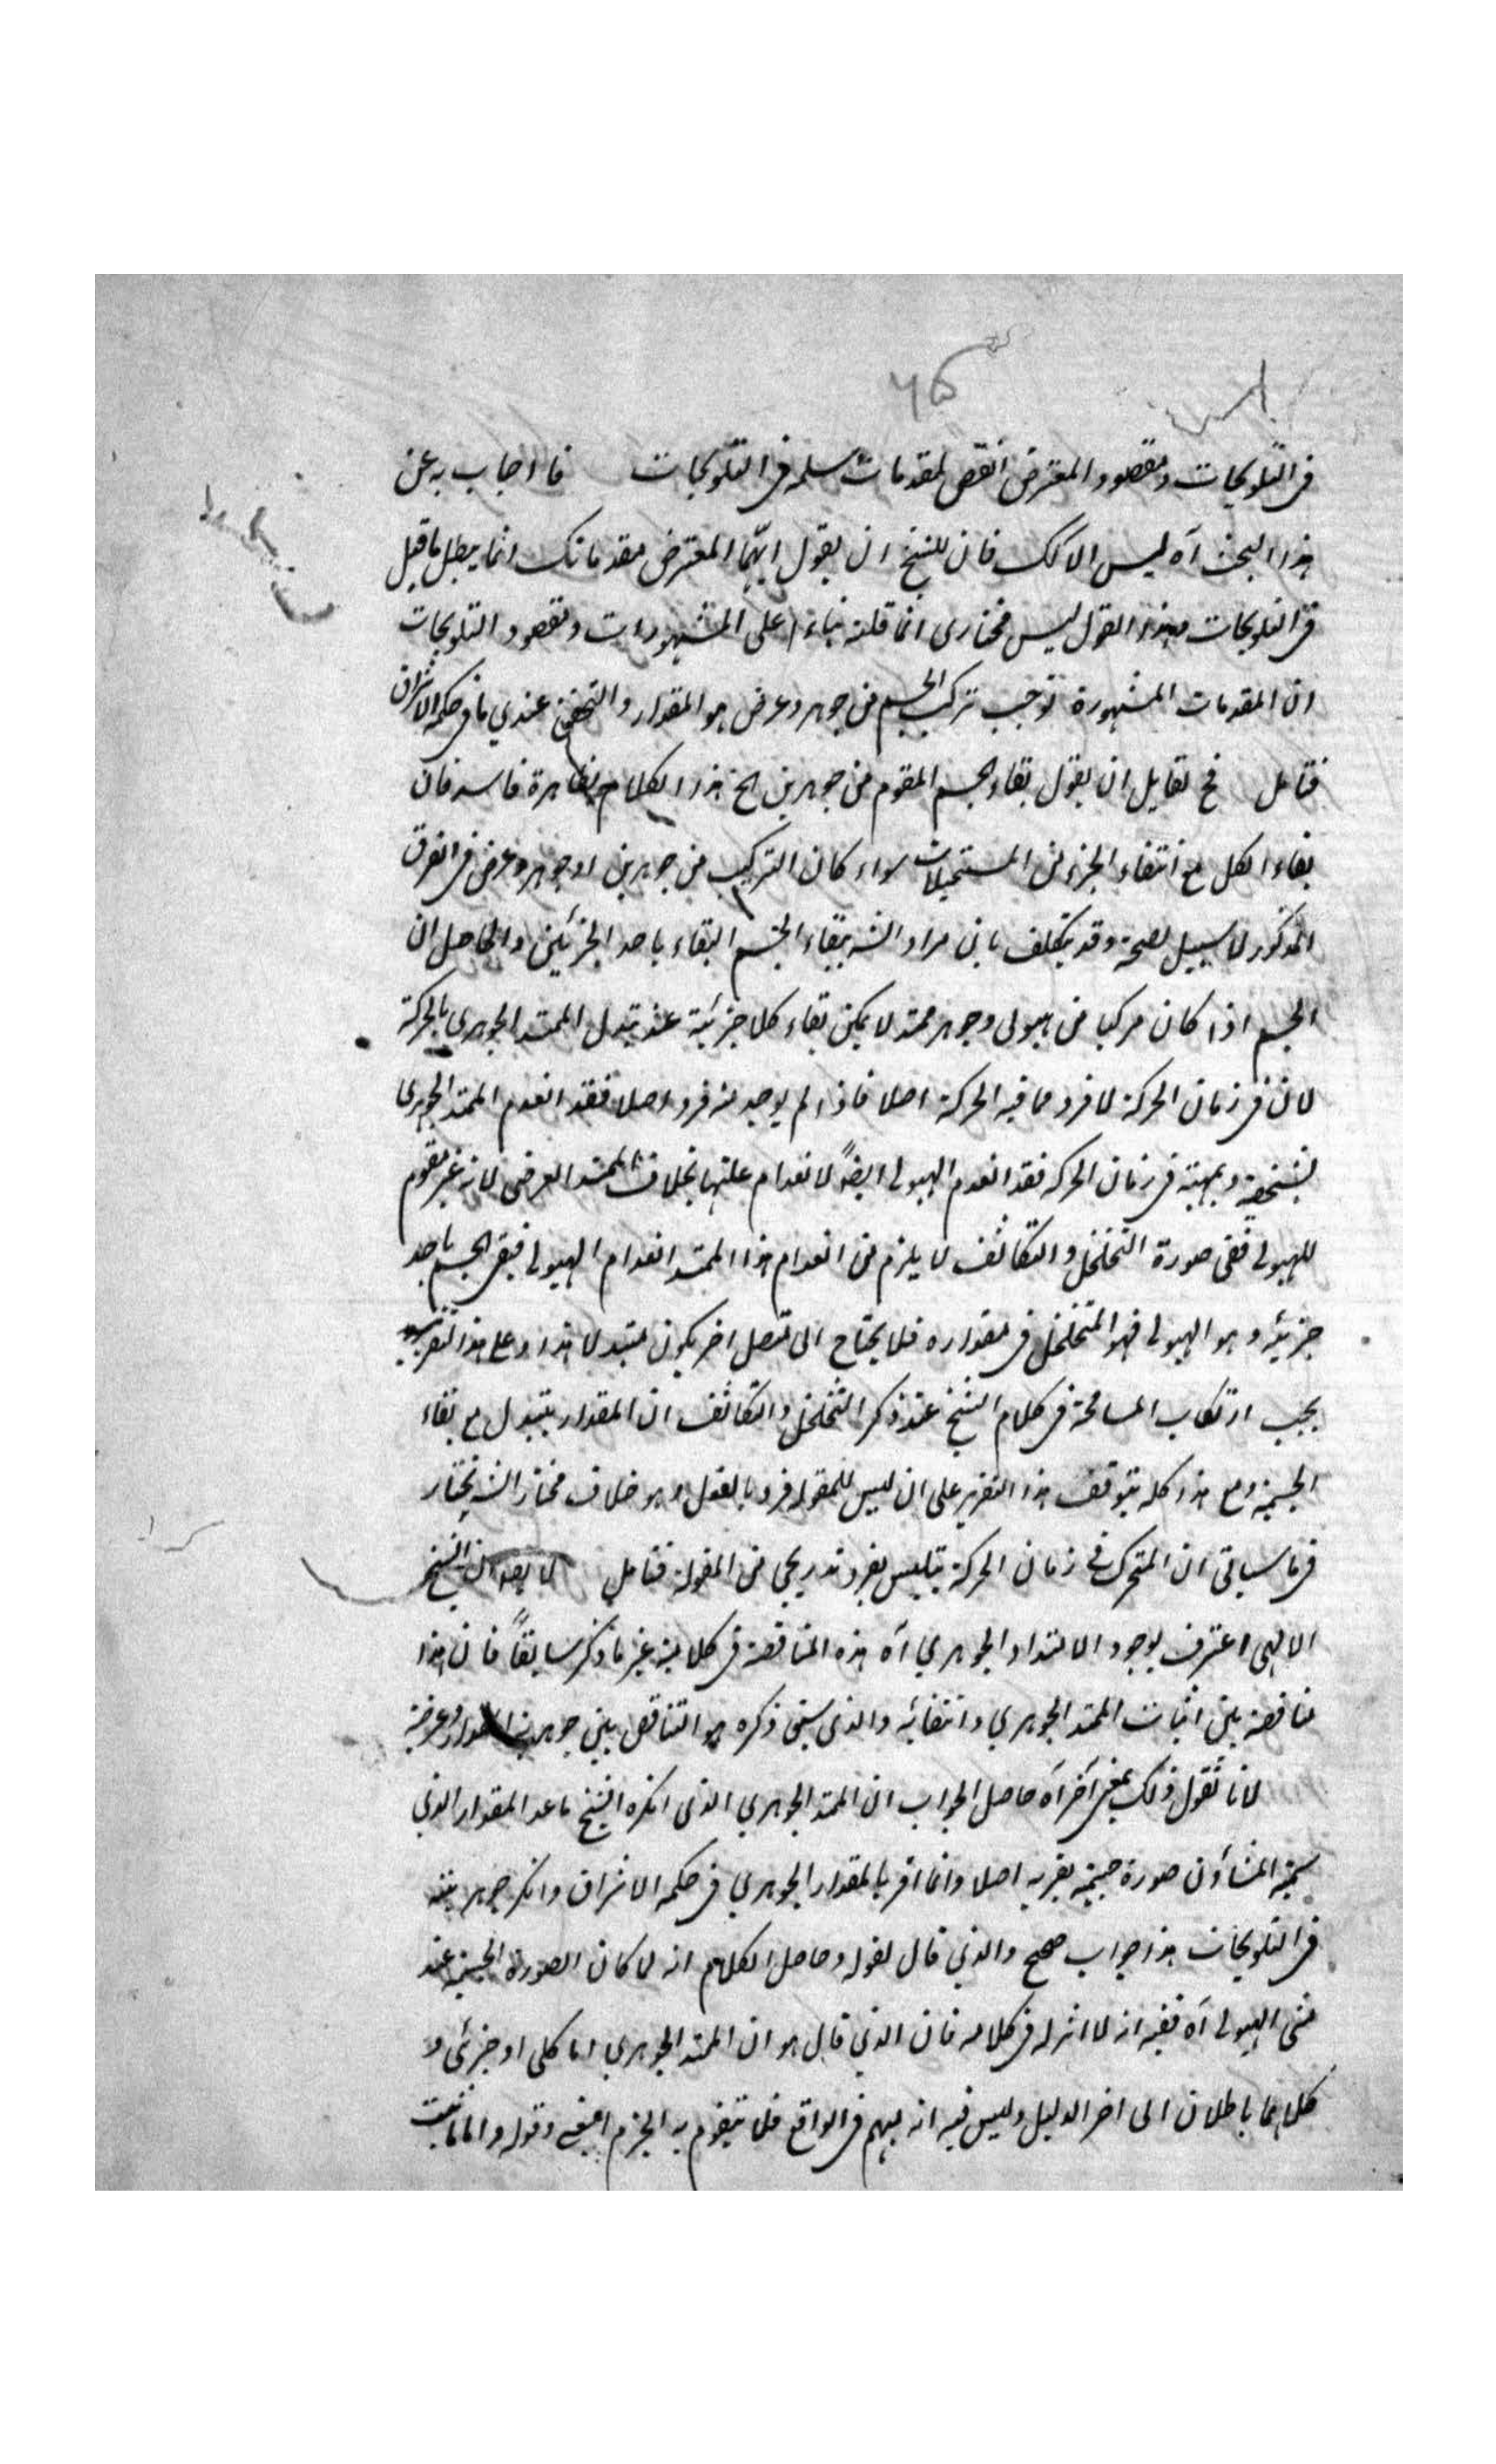 ۶۵
في التلويحات ومقصود المعترض النقض لمقدمات مسلمة في التلويحات فما اجاب به عن
هذا البحث آه ليس الا لك فان للشيخ ان يقول ايها المعترض مقدماتك انما يبطل ما قيل
في التلويحات وهذا القول ليس مختاري انما قلته بناء على المشهورات ومقصود التلويحات
ان المقدمات المشهورة توجب تركيب الجسم من جوهر وعرض هو المقدار والتحقيق عندي ما في حكمة الاشراق
فتامل فح لقايل ان يقول بقاء الجسم المقوم من جوهرين الخ هذا الكلام بظاهره فاسد فان
بقاء الكل مع انتفاء الجزء من المستحيلات سواء كان التركيب من جوهرين او جوهر وعرض في الفرق
المذكور لا سبيل لصحته وقد يتكلف بان مراد الش ببقاء الجسم البقاء باحد الجزئين والحاصل ان
الجسم اذا كان مركبا من هيولى وجوهر ممتد لا يمكن بقاء كلا جزئية عند تبدل الممتد الجوهري بالحركة
لان في زمان الحركة لا فرد مما فيه الحركة اصلا فاذا لم يوجد منه فرد اصلا فقد انعدم الممتد الجوهري
بشخصه وبمهيته في زمان الحركة فقد انعدم الهيولى ايضاً لانعدام علتها بخلاف الممتد العرضي لانه غير مقوم
للهيولى ففي صورة التخلخل والتكاثف لا يلزم من انعدام هذا الممتد انعدام الهيولى فبقى الجسم باحد
جزئيه وهو الهيولى فهو المتخلخل في مقداره فلا يحتاج الى متصل اخر يكون متبدلا هذا وعلى هذا التقرير
يجب ارتكاب المسامحة في كلام الشيخ عند ذكر التخلخل والتكاثف ان المقدار يتبدل مع بقاء
الجسمية ومع هذا كله يتوقف هذا التقرير على ان ليس للمقولة فرد بالفعل وهو خلاف مختار الش يختار
فيما سياتي ان المتحرك في زمان الحركة يتلبس بفرد تدريجي من المقولة فتامل لا يقال ان الشيخ
الالهي اعترف بوجود الامتداد الجوهري آه هذه المناقضة في كلاميه غير ما ذكر سابقاً فان هذا
مناقضة بين اثبات الممتد الجوهري وانتفائه والذي سبق ذكره هو التناقض بين جوهرية المقدار وعرضية
لانا نقول ذلك بمعنى آخر آه حاصل الجواب ان الممتد الجوهري الذي انكره الشيخ ما عدا المقدار الذي
سمته المشاؤن صورة جسمية يقربه اصلا وانما اقر بالمقدار الجوهري في حكمة الاشراق وانكر جوهريته
في التلويحات هذا جواب صحيح والذي قال لقوله وحاصل الكلام انه لما كان الصورة الجسمية عند
مثبتي الهيولى آه ففيه انه لا اثر له في كلامه فان الذي قال هو ان الممتد الجوهري اما كلي او جزئي و
كلاهما باطلان الى اخر الدليل وليس فيه انه مبهم في الواقع فلا يتقوم به الجزم وقوله واما